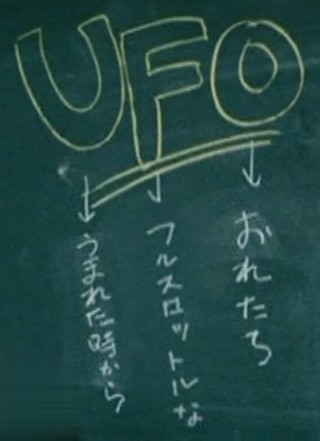 UFO
おれたち
フルスロットルな
うまれた時から